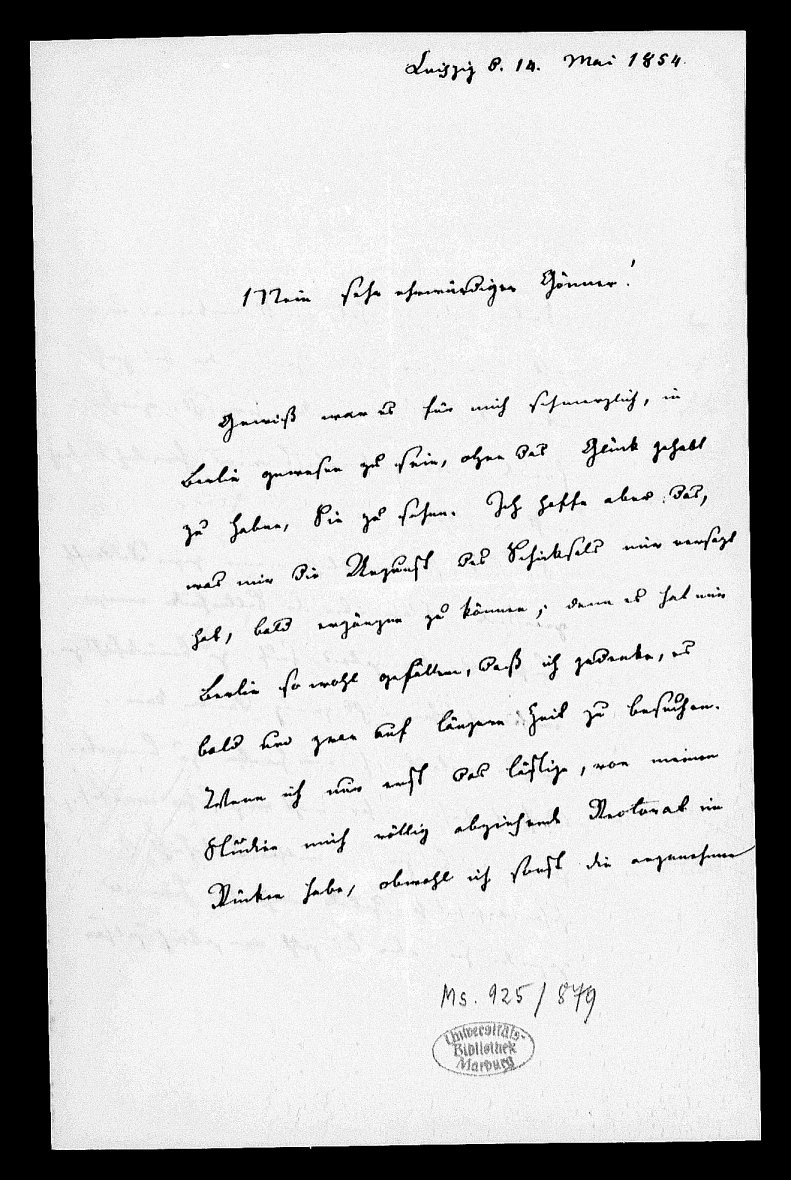 Leipzig d. 14. Mai 1854.
Mein sehr ehrwürdiger Gönner!
Gewiß war es für mich schmerzlich, in
Berlin gewesen zu sein, ohne das Glück gehabt
zu haben, Sie zu sehen. Ich hoffe aber das,
was mir die Ungunst des Schicksals nur versagt
hat, bald ergänzen zu können; denn es hat mir
Berlin so wohl gefallen, daß ich gedenke, es
bald und zwar auf längere Zeit zu besuchen.
Wenn ich nur erst das lästige, von meinen
Studien mich völlig abziehende Rectorat im
Rücken habe, obwohl ich sonst die angenehme
Ms. 925/879
Universitäts-
Bibliothek
Marburg